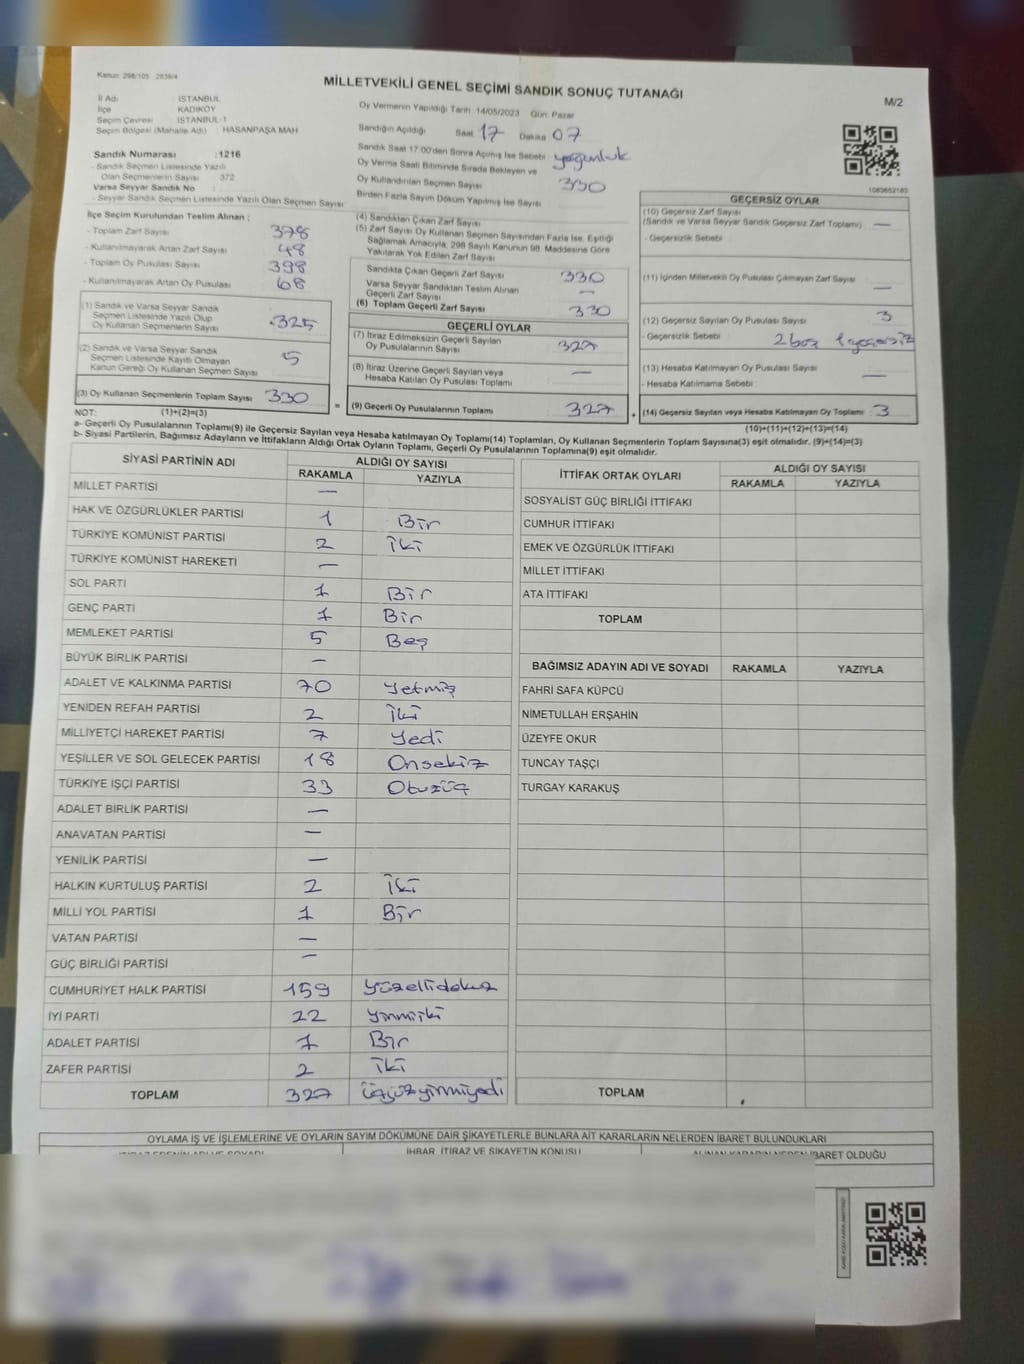 Kanun: 298/105 , 2839/4
MİLLETVEKİLİ GENEL SEÇİMİ SANDIK SONUÇ TUTANAĞI
M/2
İl Adı : İSTANBUL
İlçe : KADIKÖY
Seçim Çevresi : İSTANBUL-1
Seçim Bölgesi (Mahalle Adı) : HASANPAŞA MAH.
Oy Vermenin Yapıldığı Tarih: 14/05/2023 Gün: Pazar
Sandığın Açıldığı Saat 17 Dakika 07
Sandık Saat 17.00'den Sonra Açılmış İse Sebebi yoğunluk
Oy Verme Saati Bitiminde Sırada Bekleyen ve
Oy Kullandırılan Seçmen Sayısı 330
Birden Fazla Sayım Döküm Yapılmış İse Sayısı :
Sandık Numarası : 1216
- Sandık Seçmen Listesinde Yazılı
Olan Seçmenlerin Sayısı : 372
Varsa Seyyar Sandık No :
- Seyyar Sandık Seçmen Listesinde Yazılı Olan Seçmen Sayısı :
1083652183
İlçe Seçim Kurulundan Teslim Alınan ;
- Toplam Zarf Sayısı : 378
- Kullanılmayarak Artan Zarf Sayısı : 48
- Toplam Oy Pusulası Sayısı : 398
- Kullanılmayarak Artan Oy Pusulası : 68
(1) Sandık ve Varsa Seyyar Sandık
Seçmen Listesinde Yazılı Olup
Oy Kullanan Seçmenlerin Sayısı : 325
(2) Sandık ve Varsa Seyyar Sandık
Seçmen Listesinde Kayıtlı Olmayan
Kanun Gereği Oy Kullanan Seçmen Sayısı : 5
(3) Oy Kullanan Seçmenlerin Toplam Sayısı : 330
(4) Sandıktan Çıkan Zarf Sayısı :
(5) Zarf Sayısı Oy Kullanan Seçmen Sayısından Fazla İse, Eşitliği
Sağlamak Amacıyla, 298 Sayılı Kanunun 98. Maddesine Göre
Yakılarak Yok Edilen Zarf Sayısı :
Sandıkta Çıkan Geçerli Zarf Sayısı : 330
Varsa Seyyar Sandıktan Teslim Alınan
Geçerli Zarf Sayısı : —
(6) Toplam Geçerli Zarf Sayısı : 330
GEÇERLİ OYLAR
(7) İtiraz Edilmeksizin Geçerli Sayılan
Oy Pusulalarının Sayısı : 327
(8) İtiraz Üzerine Geçerli Sayılan veya
Hesaba Katılan Oy Pusulası Toplamı : —
= (9) Geçerli Oy Pusulalarının Toplamı : 327
GEÇERSİZ OYLAR
(10) Geçersiz Zarf Sayısı
(Sandık ve Varsa Seyyar Sandık Geçersiz Zarf Toplamı) : —
- Geçersizlik Sebebi :
(11) İçinden Milletvekili Oy Pusulası Çıkmayan Zarf Sayısı : —
(12) Geçersiz Sayılan Oy Pusulası Sayısı : 3
- Geçersizlik Sebebi : 2 boş 1 geçersiz
(13) Hesaba Katılmayan Oy Pusulası Sayısı : —
- Hesaba Katılmama Sebebi :
+ (14) Geçersiz Sayılan veya Hesaba Katılmayan Oy Toplamı : 3
NOT: (1)+(2)=(3)
(10)+(11)+(12)+(13)=(14)
a- Geçerli Oy Pusulalarının Toplamı(9) ile Geçersiz Sayılan veya Hesaba katılmayan Oy Toplamı(14) Toplamları, Oy Kullanan Seçmenlerin Toplam Sayısına(3) eşit olmalıdır. (9)+(14)=(3)
b- Siyasi Partilerin, Bağımsız Adayların ve İttifakların Aldığı Ortak Oyların Toplamı, Geçerli Oy Pusulalarının Toplamına(9) eşit olmalıdır.
SİYASİ PARTİNİN ADI ALDIĞI OY SAYISI
RAKAMLA YAZIYLA
MİLLET PARTİSİ —
HAK VE ÖZGÜRLÜKLER PARTİSİ 1 Bir
TÜRKİYE KOMÜNİST PARTİSİ 2 İki
TÜRKİYE KOMÜNİST HAREKETİ —
SOL PARTİ 1 Bir
GENÇ PARTİ 1 Bir
MEMLEKET PARTİSİ 5 Beş
BÜYÜK BİRLİK PARTİSİ —
ADALET VE KALKINMA PARTİSİ 70 yetmiş
YENİDEN REFAH PARTİSİ 2 İki
MİLLİYETÇİ HAREKET PARTİSİ 7 yedi
YEŞİLLER VE SOL GELECEK PARTİSİ 18 Onsekiz
TÜRKİYE İŞÇİ PARTİSİ 33 Otuzüç
ADALET BİRLİK PARTİSİ —
ANAVATAN PARTİSİ —
YENİLİK PARTİSİ —
HALKIN KURTULUŞ PARTİSİ 2 İki
MİLLİ YOL PARTİSİ 1 Bir
VATAN PARTİSİ —
GÜÇ BİRLİĞİ PARTİSİ —
CUMHURİYET HALK PARTİSİ 159 yüzellidokuz
İYİ PARTİ 22 yirmiiki
ADALET PARTİSİ 1 Bir
ZAFER PARTİSİ 2 İki
TOPLAM 327 üçyüzyirmiyedi
İTTİFAK ORTAK OYLARI ALDIĞI OY SAYISI
RAKAMLA YAZIYLA
SOSYALİST GÜÇ BİRLİĞİ İTTİFAKI
CUMHUR İTTİFAKI
EMEK VE ÖZGÜRLÜK İTTİFAKI
MİLLET İTTİFAKI
ATA İTTİFAKI
TOPLAM
BAĞIMSIZ ADAYIN ADI VE SOYADI RAKAMLA YAZIYLA
FAHRİ SAFA KÜPCÜ
NİMETULLAH ERŞAHİN
ÜZEYFE OKUR
TUNCAY TAŞÇI
TURGAY KARAKUŞ
TOPLAM
OYLAMA İŞ VE İŞLEMLERİNE VE OYLARIN SAYIM DÖKÜMÜNE DAİR ŞİKAYETLERLE BUNLARA AİT KARARLARIN NELERDEN İBARET BULUNDUKLARI
İHBAR, İTİRAZ VE ŞİKAYETİN KONUSU
İBARET OLDUĞU